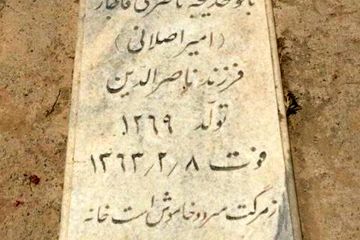 بانو خدیجه ناصری قاجار
(امیراصلانی)
فرزند ناصرالدین
تولد ۱۲۶۹
فوت ۱۳۶۳٫۲٫۸
ز مرگت سرد و خاموش است خانه